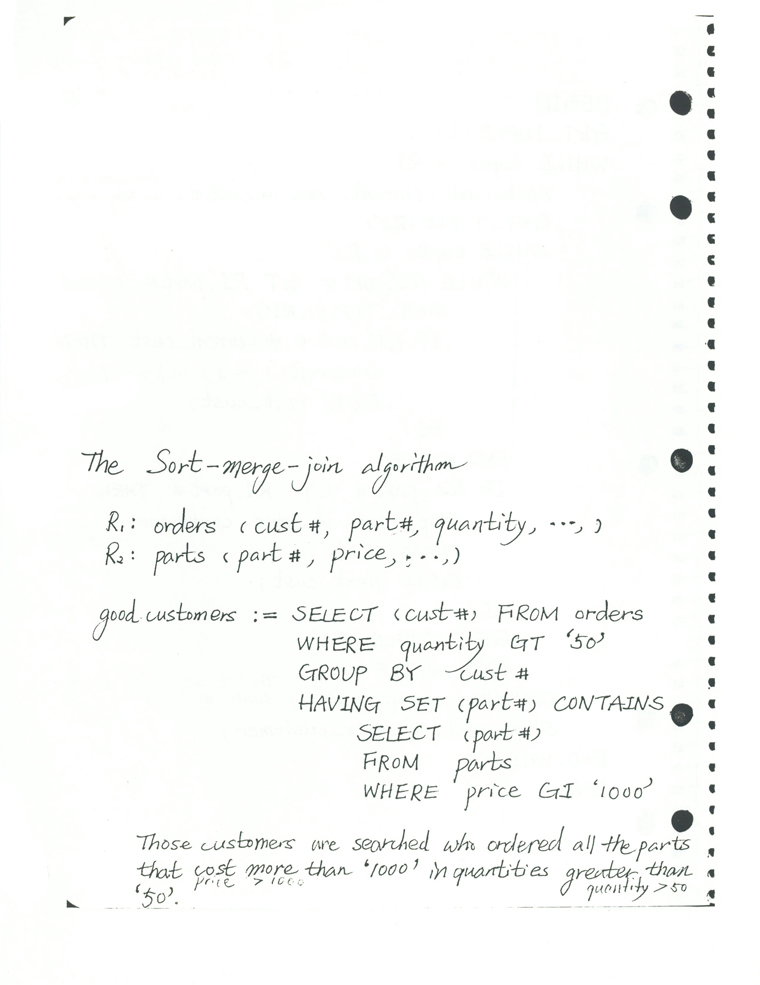 The Sort-merge-join algorithm
R₁: orders (cust #, part#, quantity, ...,)
R₂: parts (part #, price, ...,)
good customers := SELECT (cust#) FROM orders
WHERE quantity GT '50'
GROUP BY cust #
HAVING SET (part#) CONTAINS
SELECT (part #)
FROM parts
WHERE price GI '1000'
Those customers are searched who ordered all the parts
that cost more than '1000' in quantities greater than
price > 1000 quantity > 50
'50'.